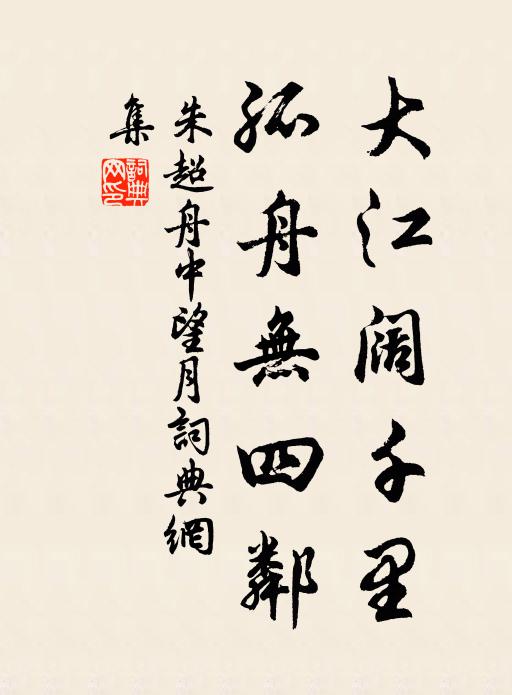 大江阔千里
孤舟無四鄰
朱超舟中望月詞典網
集
詞典
网印